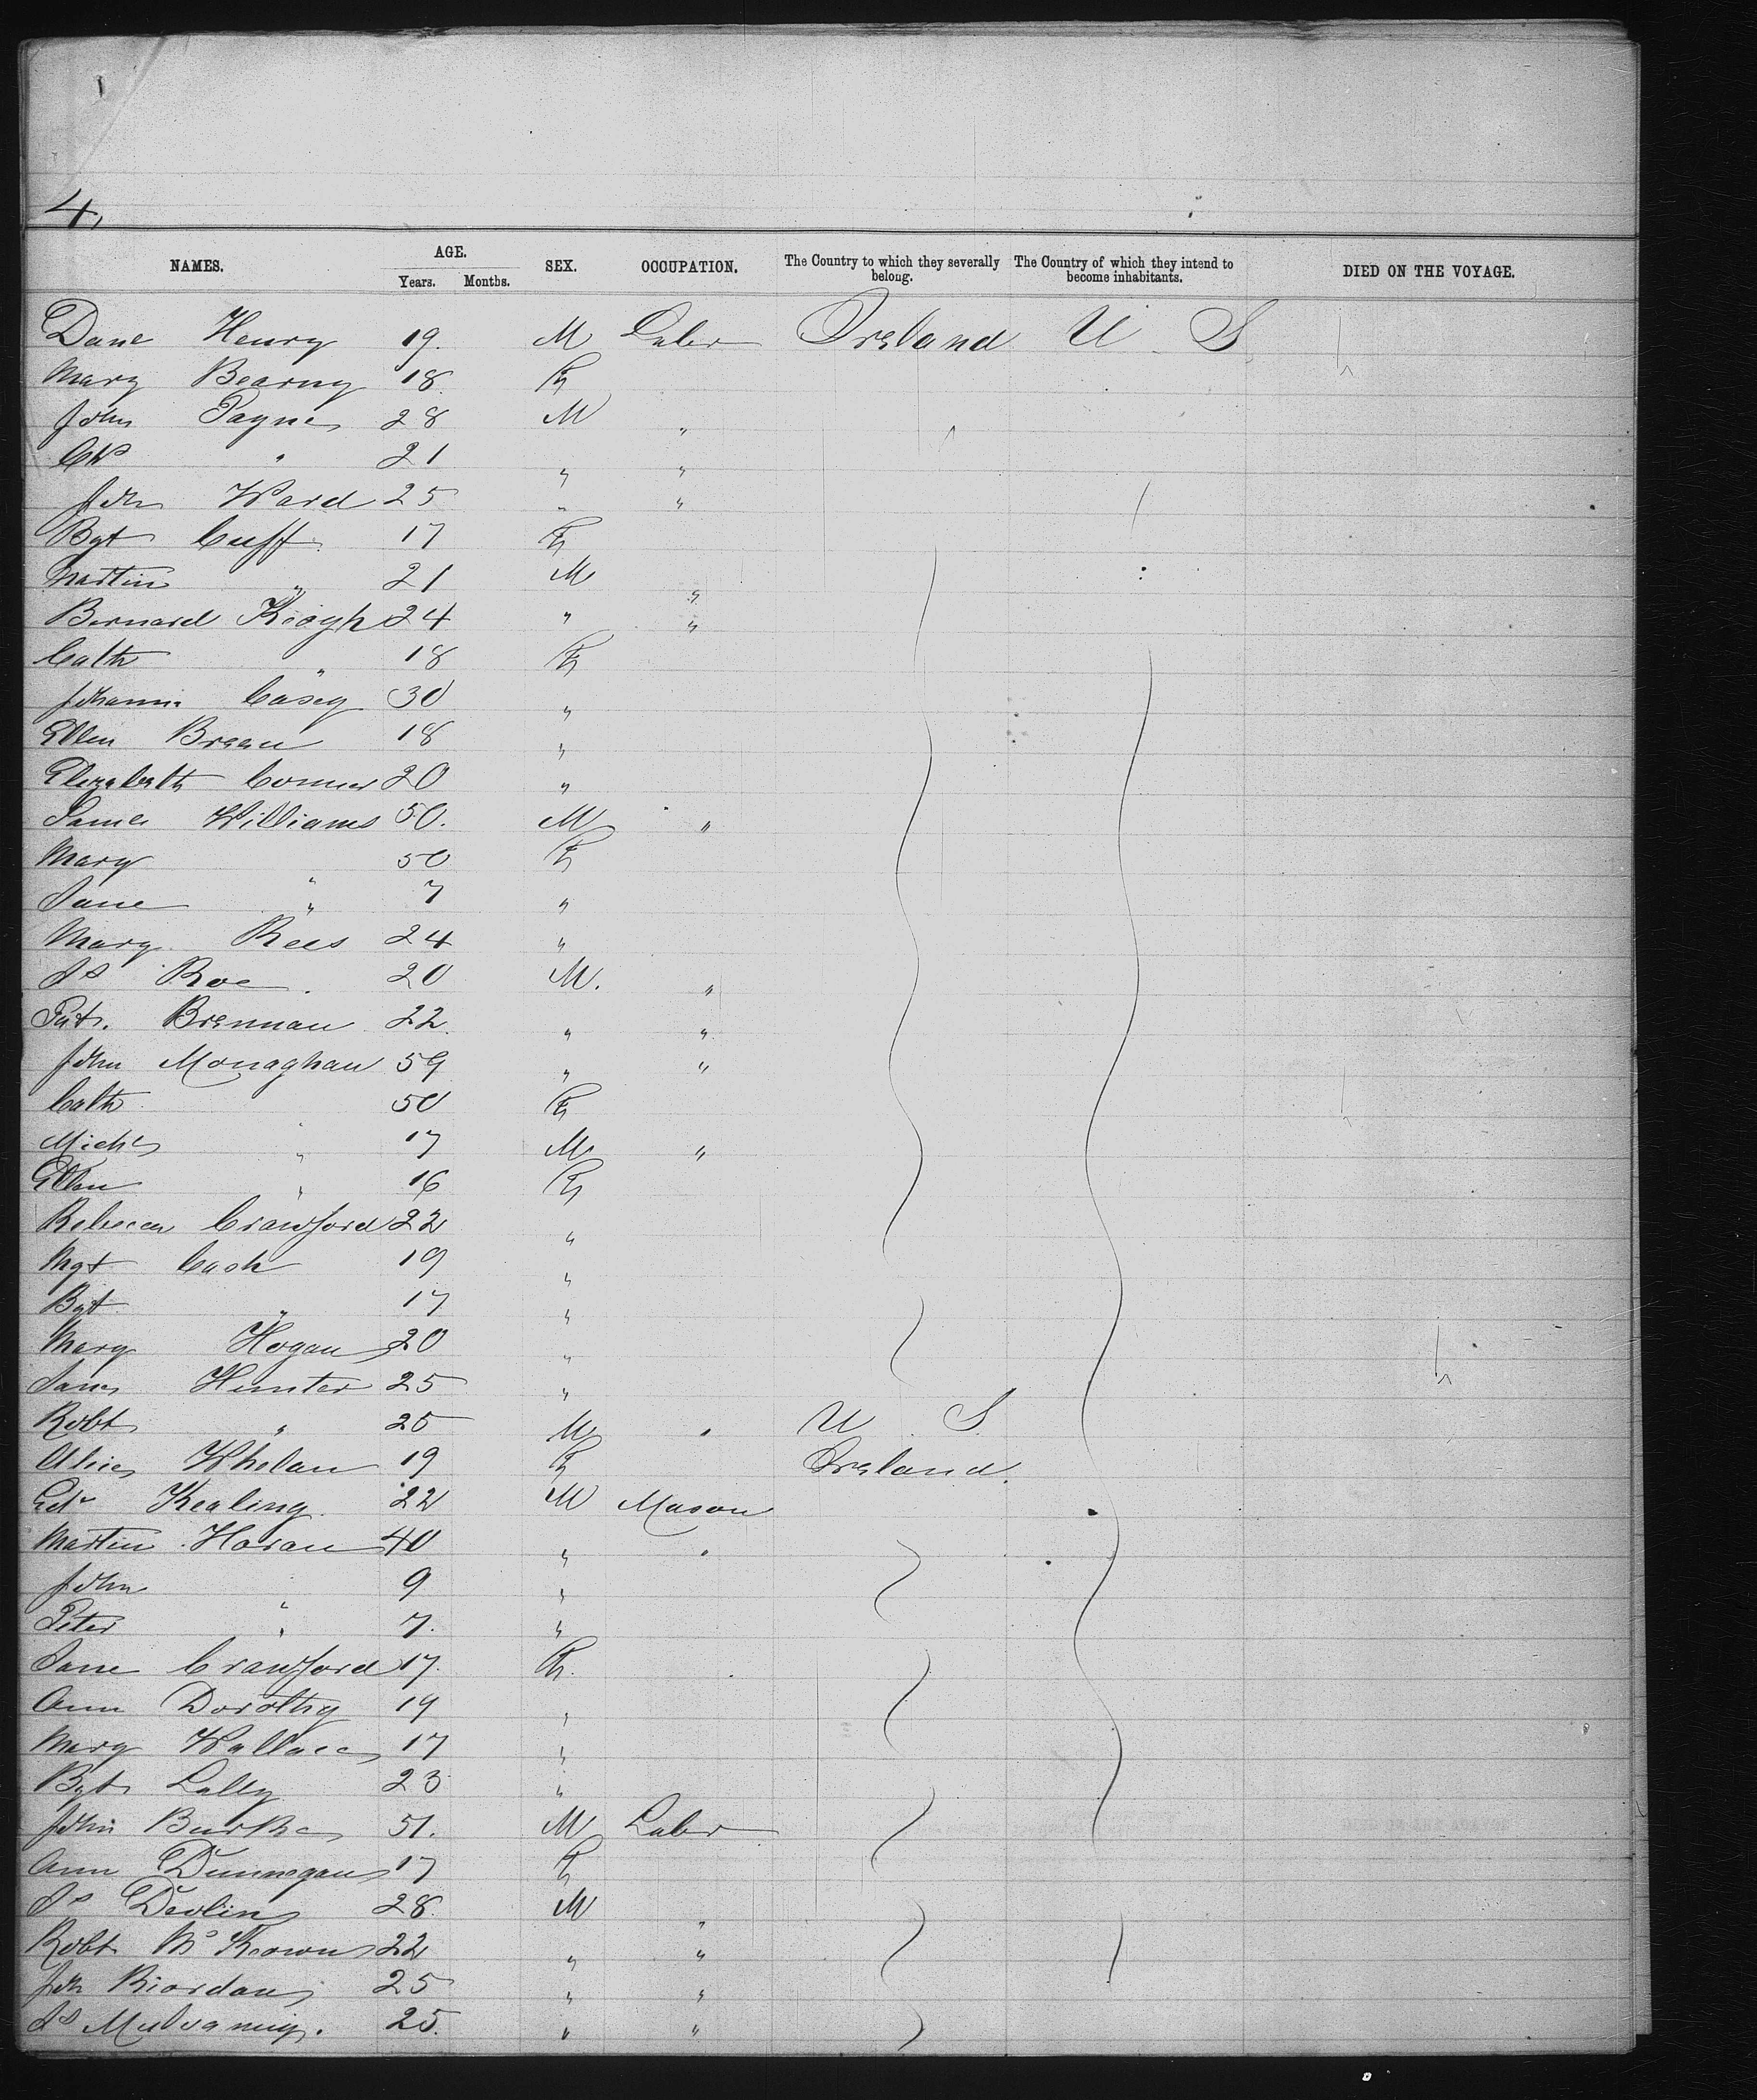 4,
NAMES. AGE. Years. Months. SEX. OCCUPATION. The Country to which they severally belong. The Country of which they intend to become inhabitants. DIED ON THE VOYAGE.
Danl Henry 19. M Labr Ireland U S
Mary Bearny 18 F
John Payne 28 M "
" 21 " "
Jno Ward 25 " "
Bgt Cuff 17 F
Martin " 21 M "
Bernard Keogh 24 " "
Cath " 18 F
Johanna Casey 30 "
Ellen Breen 18 "
Elizabeth Conner 20 "
James Williams 50. M "
Mary " 50 F
Jane " 7 "
Mary Rees 24 "
Js Roe 20 M. "
Pat. Brennan 22 " "
John Monaghan 59 " "
Cath " 50 F
Michl " 17 M "
Ellen " 16 F
Rebecca Crawford 22 "
Mgt Cash 19 "
Bgt " 17 "
Mary Hogan 20 "
Jane Hunter 25 "
Robt " 25 M " U S
Alice Whelan 19 F Ireland
Edw Kealing 22 M Mason
Martin Horan 40 " "
John " 9 "
Peter " 7. "
Jane Crawford 17. F.
Ann Dorothy 19 "
Mary Wallace 17 "
Bgt Lally 23 "
John Burke 51. M Labr
Ann Dunnegan 17 F
Js Devlin 28 M "
Robt McKeown 22 " "
Jno Riordan 25 " "
Js Mulvaney. 25. " "